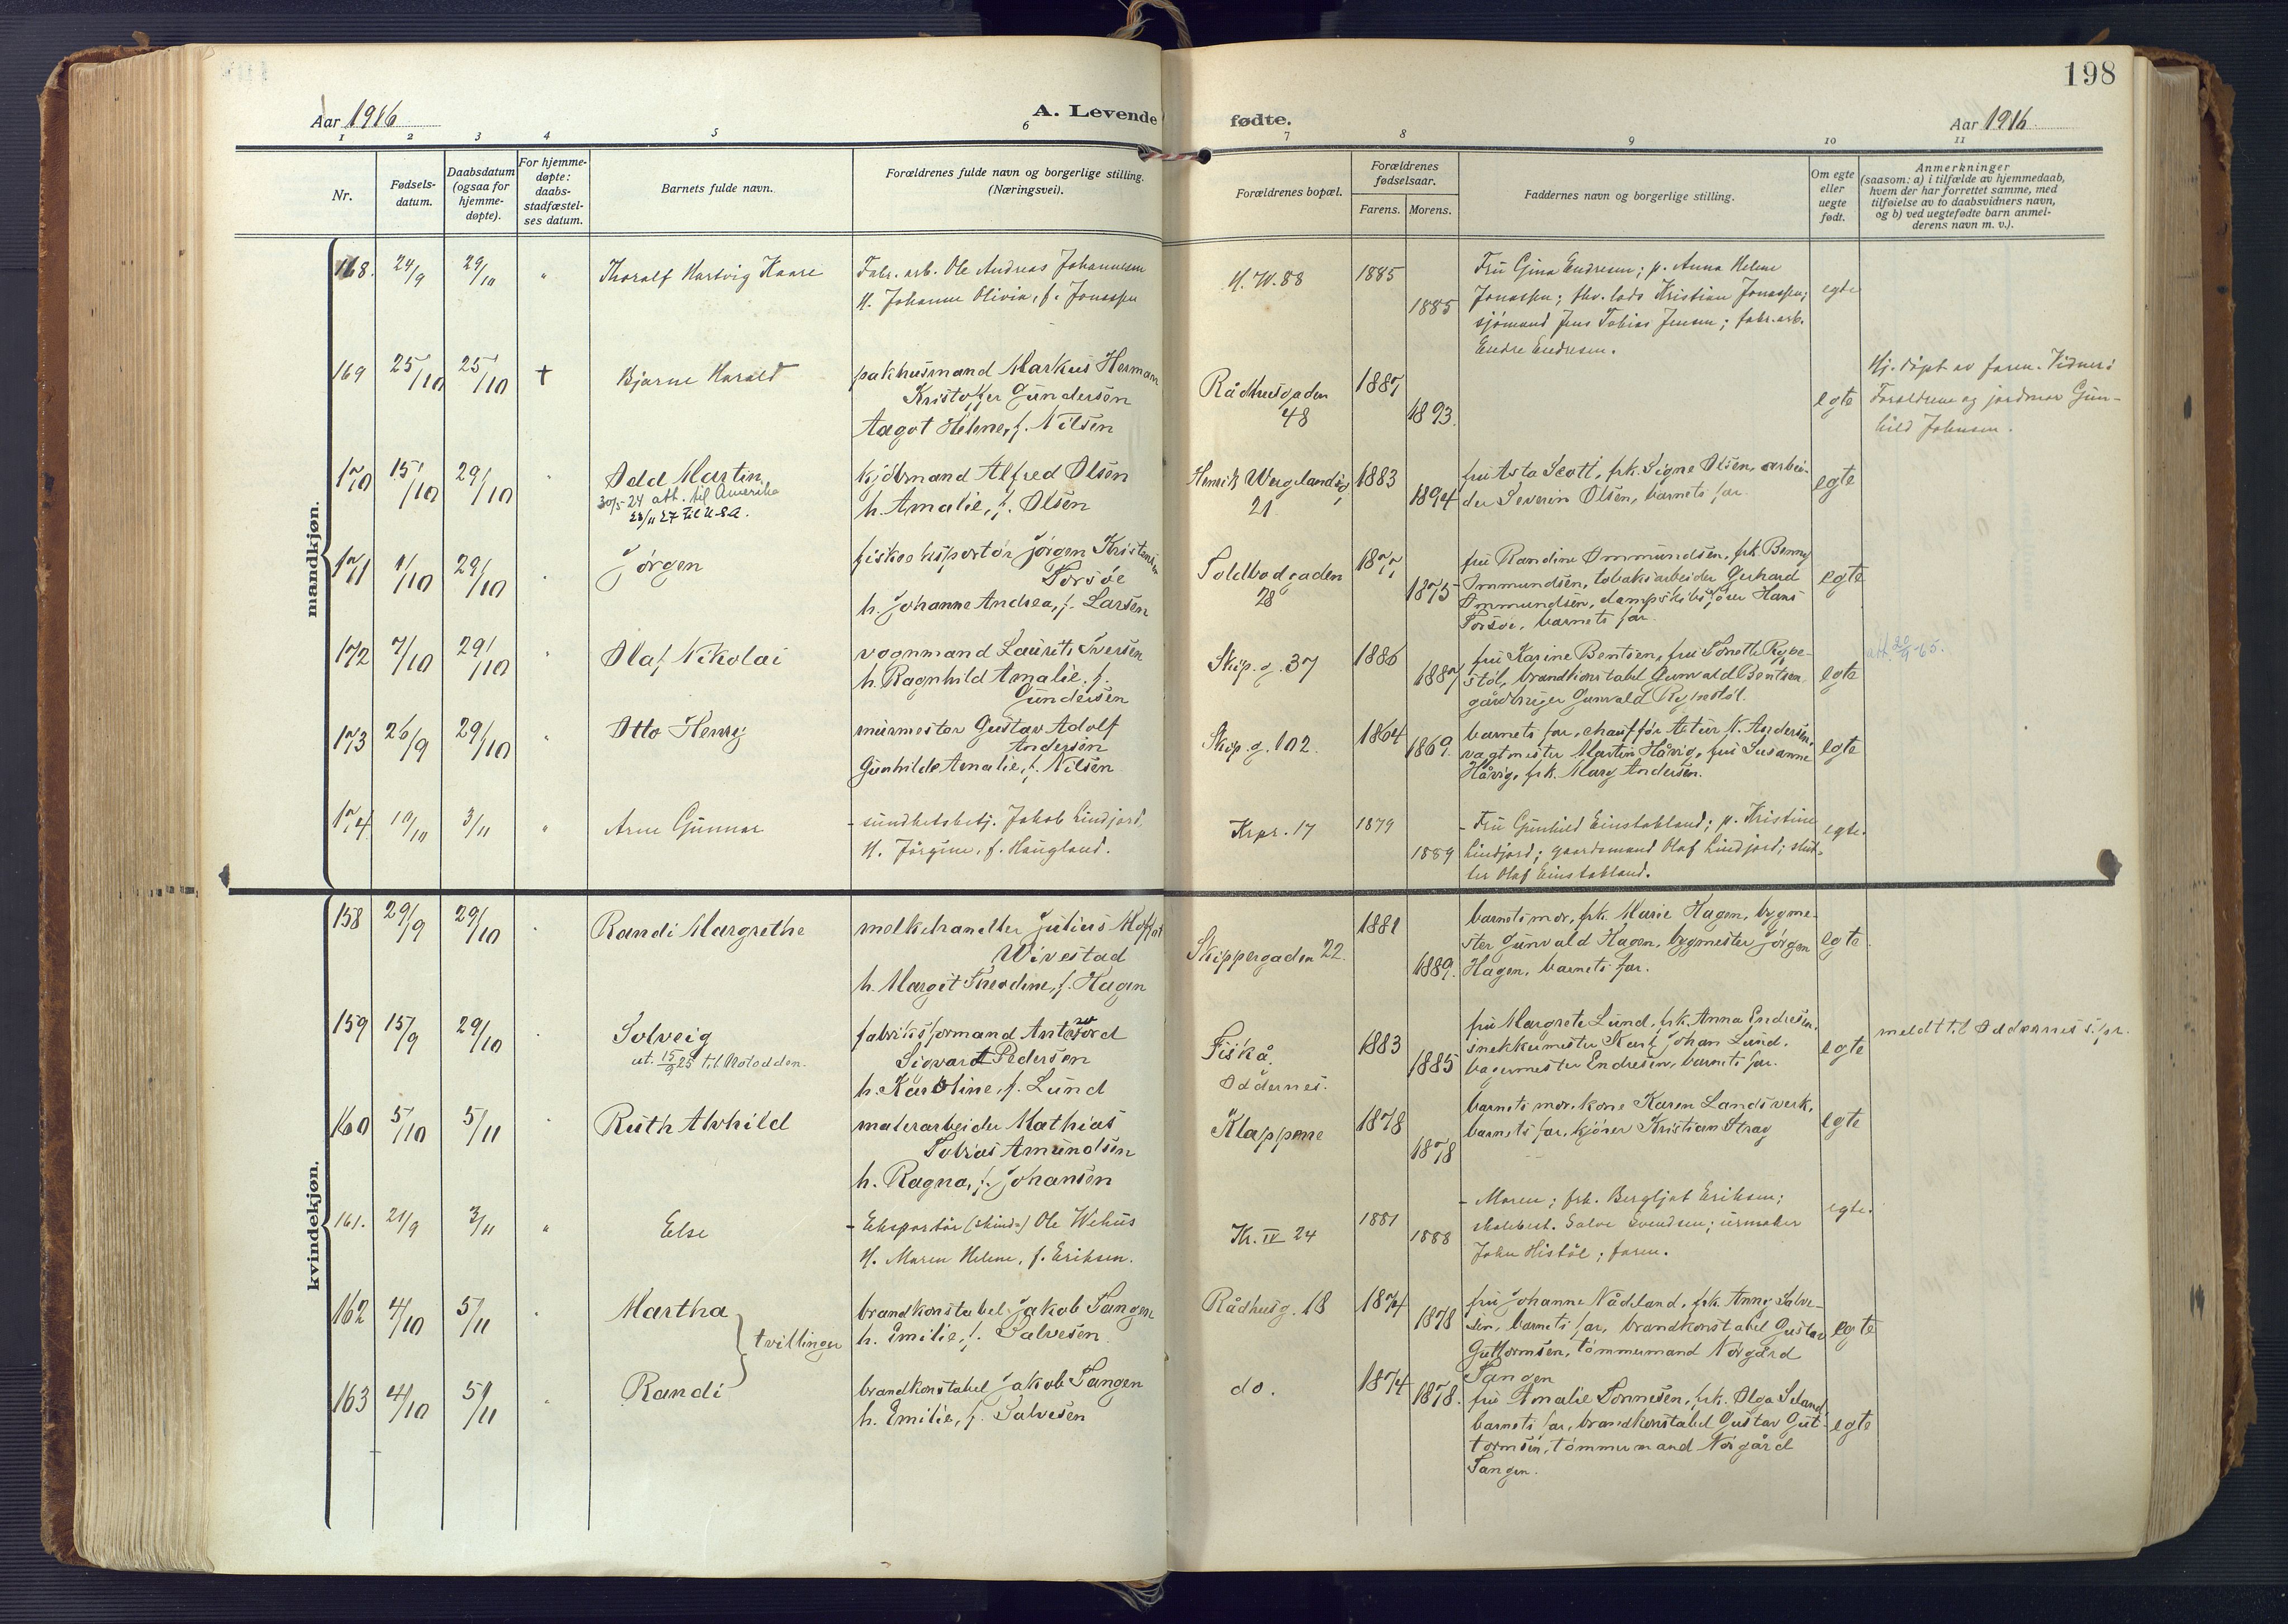 198
Aar 1916
A. Levende
fødte.
Aar 1916
1 2 3 4 5 6 7 8 9 10 11
Nr.
Fødsels-
datum.
Daabsdatum
(ogsaa for
hjemme-
døpte).
For hjemme-
døpte:
daabs-
stadfæstel-
ses datum.
Barnets fulde navn.
Forældrenes fulde navn og borgerlige stilling.
(Næringsvei).
Forældrenes bopæl.
Forældrenes
fødselsaar.
Farens. Morens.
Faddernes navn og borgerlige stilling.
Om egte
eller
uegte
født.
Anmerkninger
(saasom: a) i tilfælde av hjemmedaab,
hvem der har forrettet samme, med
tilføielse av to daabsvidners navn,
og b) ved uegtefødte barn anmel-
derens navn m. v.).
mandkjøn.
168. 24/9 29/10 " Thoralf Hartvig Kaare
Fabr. arb. Ole Andreas Johannesen
H. Johanne Olivia, f. Jonassen
H. W. 88
1885
1885
Fru Gina Endresen; p. Anna Helene
Jonassen; hv. lods Kristian Jonassen;
sjömand Jens Tobias Jensen; fabr. arb.
Endre Endresen.
egte
169 25/10 25/10 † Bjarne Harald
pakhusmand Markus Herman
Kristoffer Gundersen
Aagot Helene, f. Nilsen
Rådhusgaden
48
1887
1893.
egte
Hj. döpt av faren. Vidner:
Forældrene og jordmor Gun-
hild Johnsen.
170 15/10 29/10 " Odd Martin
30/5-24 att. til Amerika
23/11 27 Til U.S.A.
kjöbmand Alfred Olsen
h. Amalie, f. Olsen
Henrik Wergelandsg
21
1883
1894
fru Asta Scott, frk. Signe Olsen, arbei-
der Severin Olsen, barnets far.
egte
171 1/10 29/10 " Jörgen
fiskeeksportör Jörgen Kristensen
Torsöe
h. Johanne Andrea, f. Larsen
Toldbodgaden
28
1877
1875
fru Randine Ommundsen, frk. Benny
Ommundsen, tobaksarbeider Gerhard
Ommundsen, dampskibsförer Hans
Torsöe, barnets far.
egte
172 7/10 29/10 " Olaf Nikolai
vognmand Laurits Iversen
h. Ragnhild Amalie, f.
Gundersen
Skip. g. 37
1886
1887
fru Karine Bentsen, fru Tonette Rype-
stöl, brandkonstabel Gunvald Bentsen,
gårdbruger Gunvald Rypestöl.
egte
173 26/9 29/10 " Otto Henry
murmester Gustav Adolf
Andersen
Gunhilde Amalie, f. Nilsen
Skip. g. 102.
1864
1869.
barnets far, chauffør Artur N. Andersen,
vagtmester Martin Håvig, fru Susanne
Håvig, frk. Mary Andersen.
egte
174 10/10 3/11 " Arne Gunnar
- sundhetsbetj. Jakob Lindjord,
H. Jörgine, f. Haugland.
Krpr. 17
1879
1889
- Fru Gunhild Einstabland; p. Kristine
Lindjord; gaardsmand Olaf Lindjord;
Olaf Einstabland.
egte.
kvindekjøn.
158 29/9 29/10 " Randi Margrethe
melkehandler Julius
Wivestad
h. Margit Theodine, f. Hagen
Skippergaden 22.
1881
1889.
barnets mor, frk. Marie Hagen, bygme-
ster Gunvald Hagen, bygmester Jörgen
Hagen, barnets far.
egte.
159 15/9 29/10 " Solveig
ut. 15/9 25 til Notodden.
fabriksformand
Sigvart Pedersen
h. Karoline, f. Lund
Fiskå.
Oddernes.
1883
1885
fru Margrete Lund, frk. Anna Endresen.
snekkermester Johan Lund.
bagermester Endresen, barnets far.
egte
meldt til Oddernes s.pr.
160 5/10 5/11 " Ruth Alvhild
malerarbeider Mathias
Tobias Amundsen
h. Ragna, f. Johansen
Klappene
1878
1878
barnets mor, kone Karen Landsverk,
barnets far, kjörer Kristian Stray
egte
161. 21/9 3/11 " Else
- Eksportör (skind=) Ole Wehus
H. Maren Helene, f. Eriksen.
Kr. IV 24
1881
1888
- Moren; frk. Bergljot Eriksen;
skolebest. Salve Svendsen; urmaker
John Histöl; faren.
egte.
162 4/10 5/11 " Martha
tvillinger
brandkonstabel Jakob Tangen
h. Emilie, f. Salvesen
Rådhusg. 18
1874
1878
fru Johanne Nådeland, frk. Anny Salve-
sen, barnets far, brandkonstabel Gustav
Guttormsen, tömmermand Norgård
Tangen
egte
163 4/10 5/11 " Randi
brandkonstabel Jakob Tangen
h. Emilie, f. Salvesen
do.
1874
1878.
fru Amalie Tönnesen, frk. Olga Seland,
barnets far, brandkonstabel Gustav Gut-
tormsen, tömmermand Norgård
Tangen.
egte